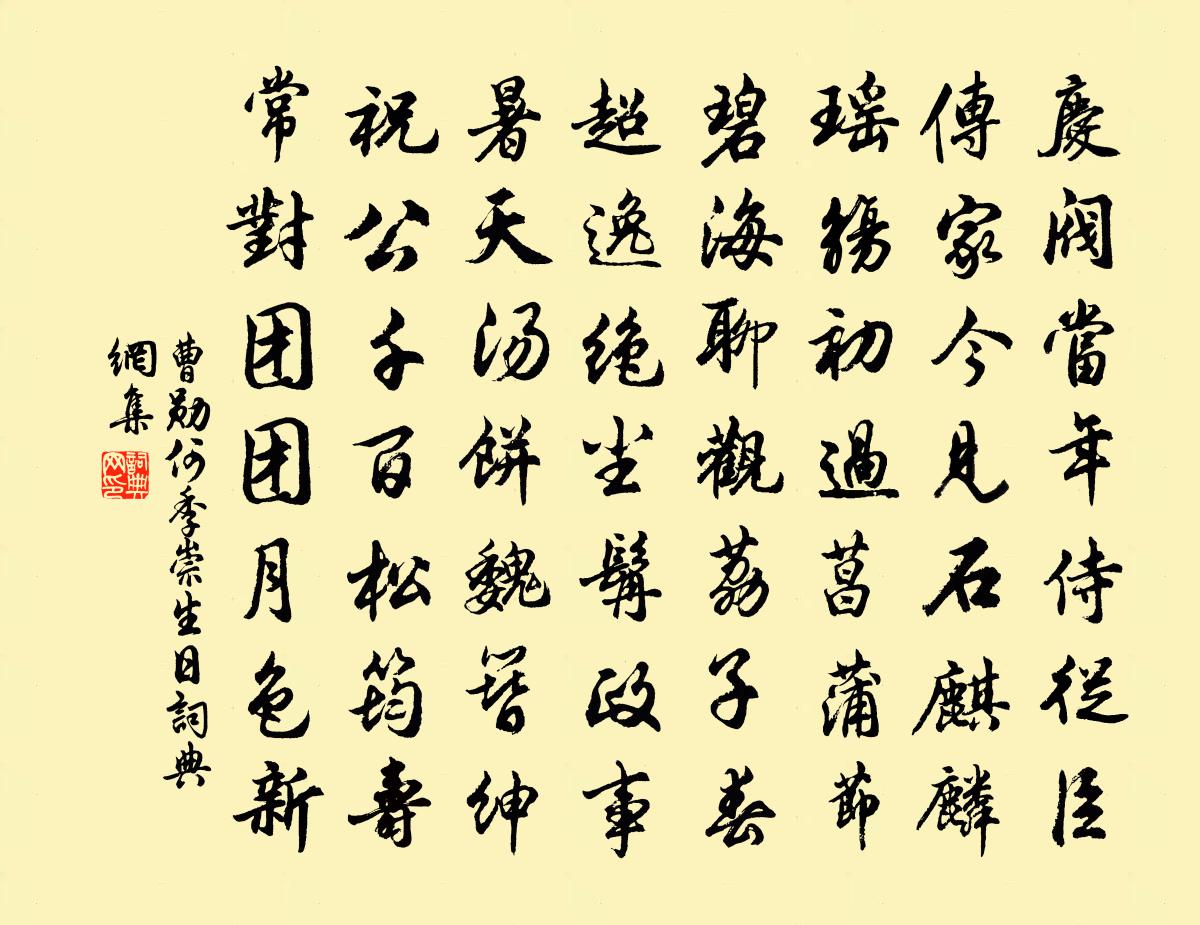 慶閥當年侍從臣
傳家今見石麒麟
瑶觴初過菖蒲節
碧海聊觀荔子春
超逸絶尘髯政事
暑天汤餅魏簪紳
祝公千百松筠壽
常對团团月色新
曹勛何季崇生日詞典
網集
詞典网印